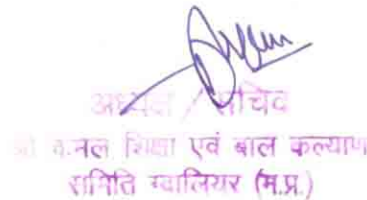 अध्यक्ष / सचिव
श्री कमल शिक्षा एवं बाल कल्याण
समिति ग्वालियर (म.प्र.)